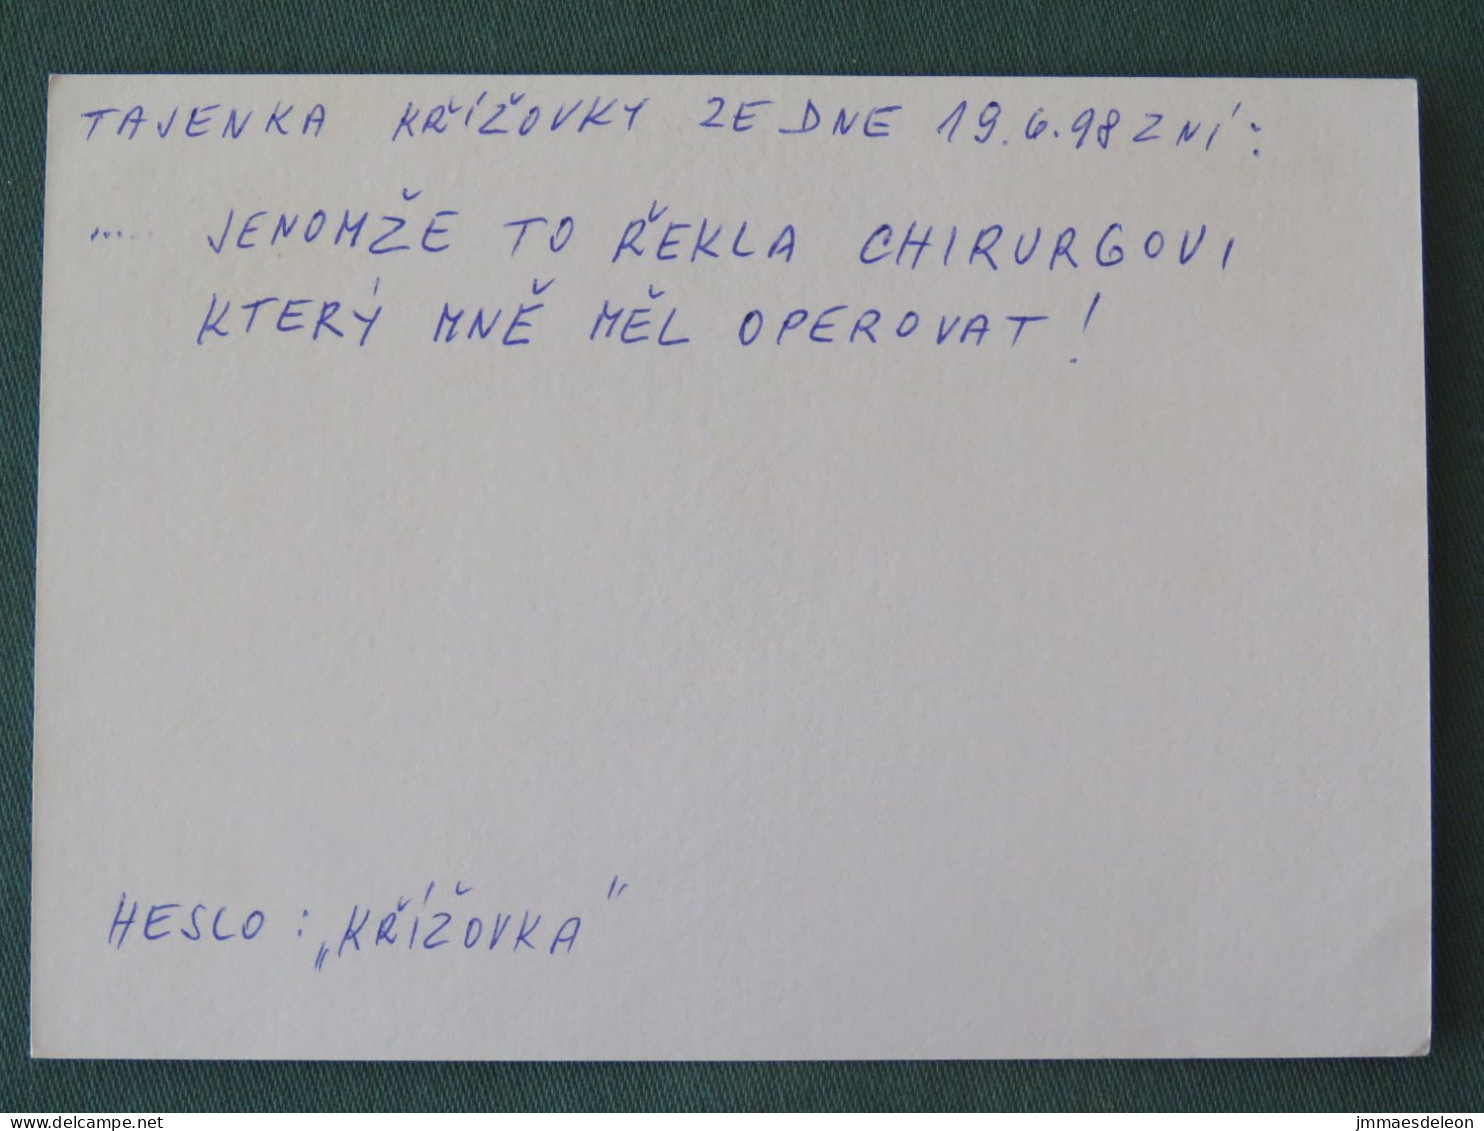 TAJENKA KŘÍŽOVKY ZE DNE 19.6.98 ZNÍ:
..... JENOMŽE TO ŘEKLA CHIRURGOVI
KTERÝ MNĚ MĚL OPEROVAT!
HESLO: „KŘÍŽOVKA"
www.delcampe.net
jmmaesdeleon